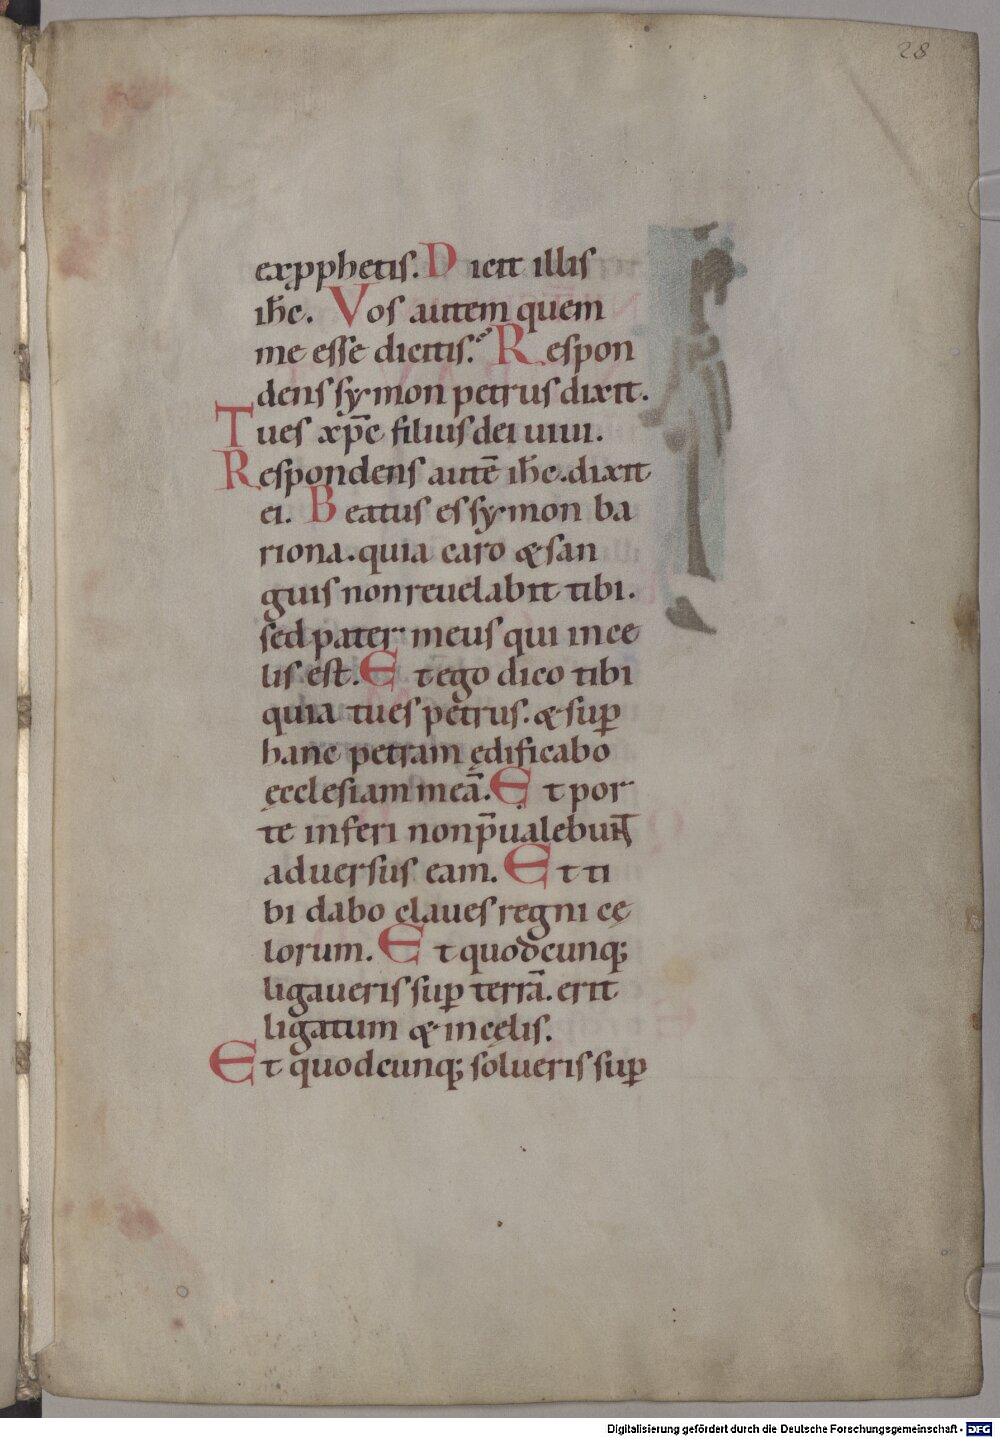 28
ex pphetis. Dicit illis
ih̅c. Vos autem quem
me esse dicitis. Respon
dens symon petrus dixit.
Tu es xp̅c filius dei uiui.
Respondens aute̅ ih̅c. dixit
ei. Beatus es symon ba
riona. quia caro & san
guis non reuelabit tibi.
sed pater meus qui in ce
lis est. Et ego dico tibi
quia tu es petrus. & sup̱
hanc petram ędificabo
ęcclesiam mea̅. Et por
te inferi non p̅ualebun̅t
aduersus eam. Et ti
bi dabo claues regni cę
lorum. Et quodcunq;
ligaueris sup̱ terra̅. erit
ligatum & in cęlis.
Et quodcunq; solueris sup̱
Digitalisierung gefördert durch die Deutsche Forschungsgemeinschaft - DFG